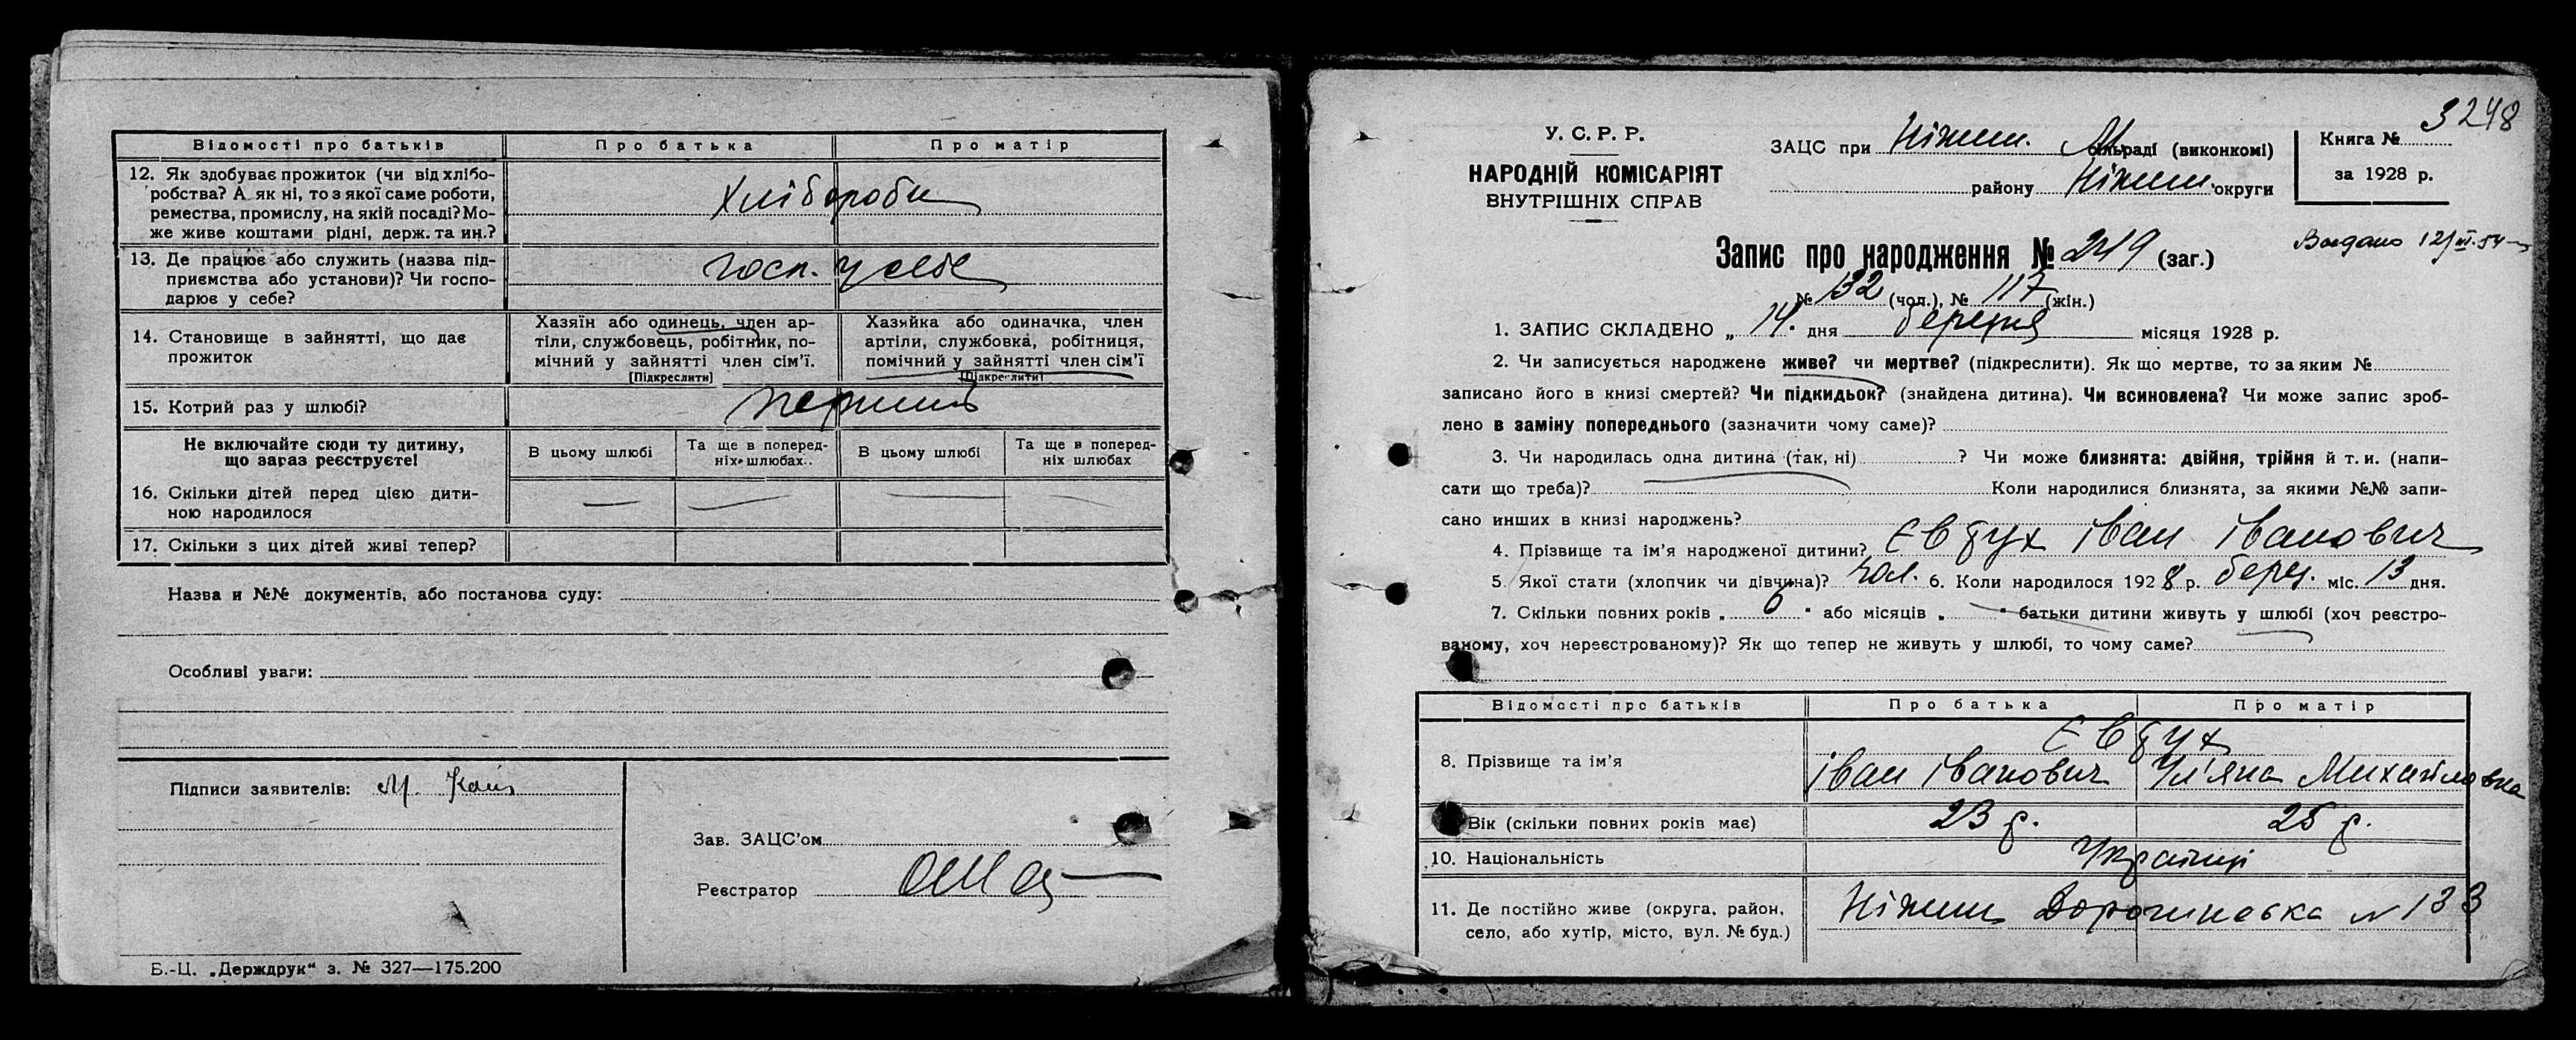 Відомості про батьків Про батька Про матір
12. Як здобуває прожиток (чи від хлібо-
робства? А як ні, то з якої саме роботи,
ремества, промислу, на якій посаді? Мо-
же живе коштами рідні, держ. та ин.?
Хлібороби
13. Де працює або служить (назва під-
приємства або установи)? Чи госпо-
дарює у себе?
госп. у себе
14. Становище в зайнятті, що дає
прожиток
Хазяїн або одинець, член ар-
тіли, службовець, робітник, по-
мічний у зайнятті член сім'ї.
[Підкреслити]
Хазяйка або одиначка, член
артіли, службовка, робітниця,
помічний у зайнятті член сім'ї
[Підкреслити]
15. Котрий раз у шлюбі?
перший
Не включайте сюди ту дитину,
що зараз реєструєте!
В цьому шлюбі
Та ще в поперед-
ніх шлюбах
В цьому шлюбі
Та ще в поперед-
ніх шлюбах
16. Скільки дітей перед цією дити-
ною народилося — — — —
17. Скільки з цих дітей живі тепер?
Назва и №№ документів, або постанова суду:
Особливі уваги:
Підписи заявителів: М.
Зав. ЗАЦС'ом
Реєстратор
Б.-Ц. „Держдрук“ з. № 327—175.200
3248
У. С. Р. Р.
НАРОДНІЙ КОМІСАРІЯТ
ВНУТРІШНІХ СПРАВ
ЗАЦС при Ніжин. М. сільраді (виконкомі)
району Ніжин. округи
Книга №
за 1928 р.
Запис про народження № 249 (заг.)
№ 132 (чол.), № 117 (жін.)
1. ЗАПИС СКЛАДЕНО „ 14. дня березня місяця 1928 р.
2. Чи записується народжене живе? чи мертве? (підкреслити). Як що мертве, то за яким №
записано його в книзі смертей? Чи підкидьок? (знайдена дитина). Чи всиновлена? Чи може запис зроб-
лено в заміну попереднього (зазначити чому саме)?
3. Чи народилась одна дитина (так, ні) ? Чи може близнята: двійня, трійня й т. и. (напи-
сати що треба)? Коли народилися близнята, за якими №№ запи-
сано инших в книзі народжень?
4. Прізвище та ім'я народженої дитини? Євтух Іван Іванович
5. Якої стати (хлопчик чи дівчина)? чол. 6. Коли народилося 1928 р. берез. міс. 13 дня.
7. Скільки повних років „ 6 “ або місяців „ — “ батьки дитини живуть у шлюбі (хоч реєстро-
ваному, хоч нереєстрованому)? Як що тепер не живуть у шлюбі, то чому саме?
Відомості про батьків Про батька Про матір
Євтух
8. Прізвище та ім'я Іван Іванович Ул'яна Михайловна
Вік (скільки повних років має) 23 р. 25 р.
10. Національність Українці
11. Де постійно живе (округа, район,
село, або хутір, місто, вул. № буд.)
Ніжин Дорогинська № 133